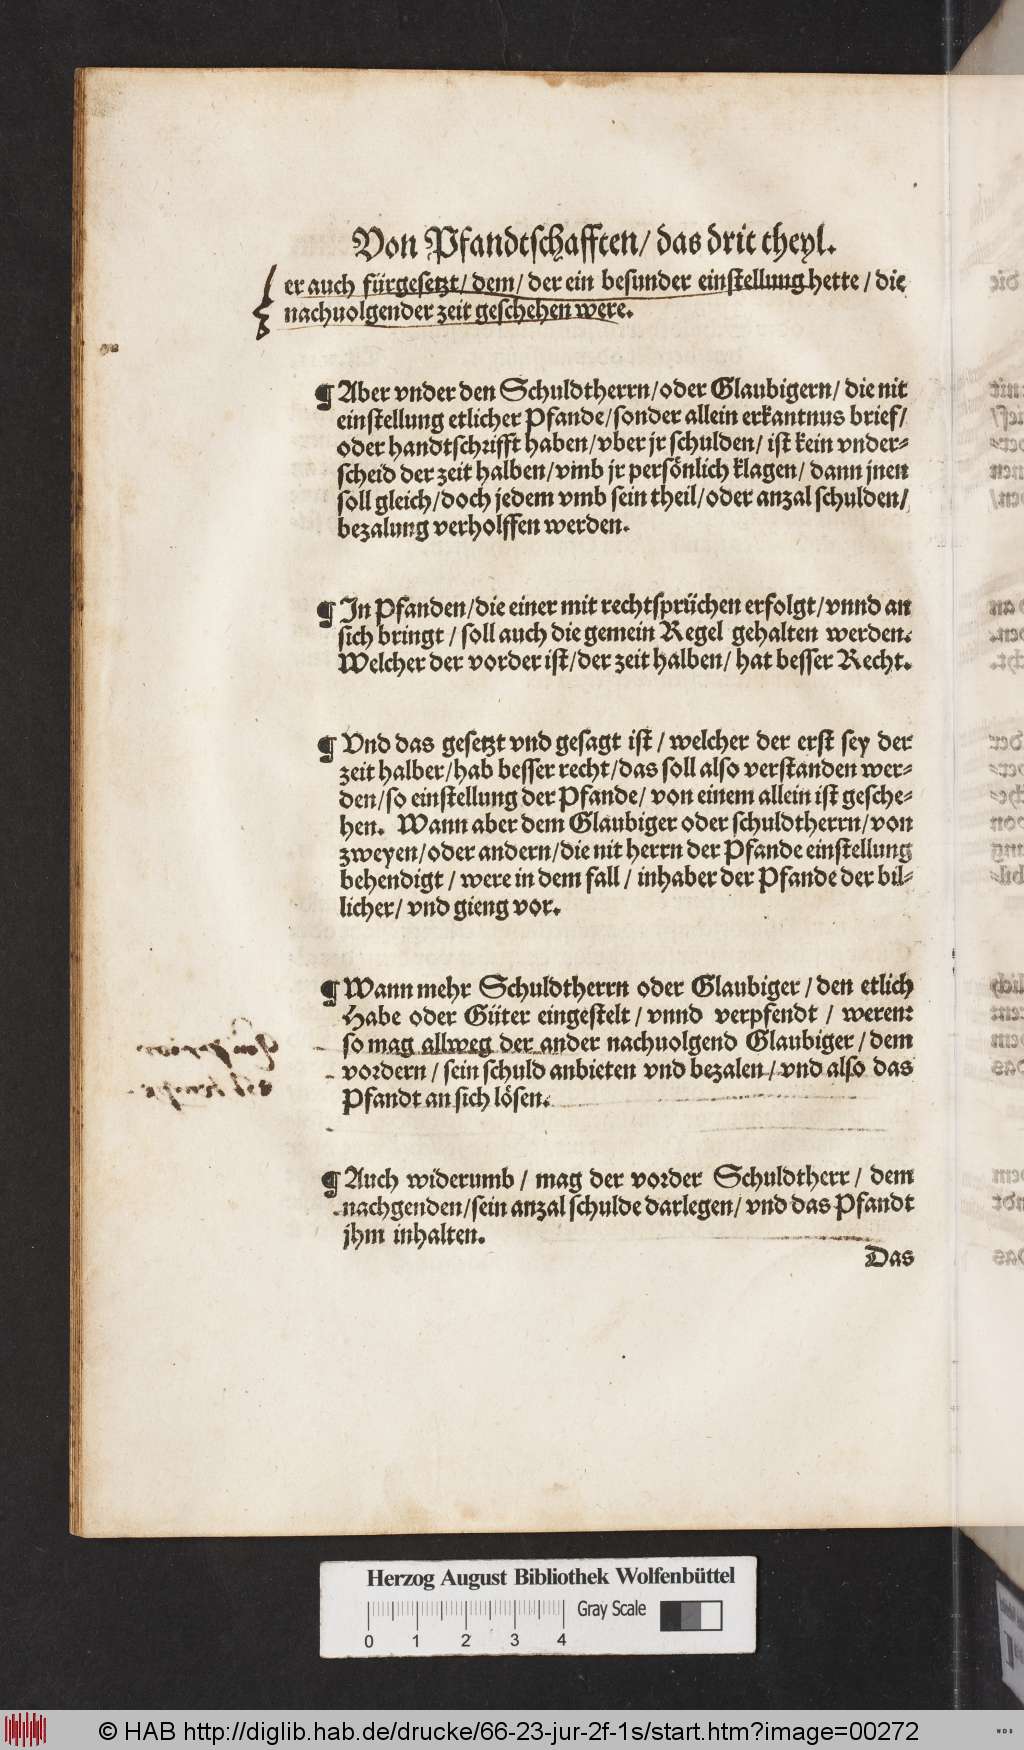 Von Pfandtschafften/ das drit theyl.
er auch fürgesetzt/ dem/ der ein besunder einstellung hette / die
nachuolgender zeit geschehen were.
¶ Aber vnder den Schuldtherrn/oder Glaubigern/ die nit
einstellung etlicher Pfande/sonder allein erkantnus brief/
oder handtschrifft haben/vber jr schulden/ ist kein vnder⸗
scheid der zeit halben/vmb jr persönlich klagen/ dann jnen
soll gleich/doch jedem vmb sein theil/oder anzal schulden/
bezalung verholffen werden.
¶ In Pfanden/die einer mit rechtsprüchen erfolgt/vnnd an
sich bringt / soll auch die gemein Regel gehalten werden.
Welcher der vorder ist/der zeit halben/ hat besser Recht.
¶ Vnd das gesetzt vnd gesagt ist / welcher der erst sey der
zeit halber/hab besser recht/das soll also verstanden wer⸗
den/so einstellung der Pfande/ von einem allein ist gesche⸗
hen. Wann aber dem Glaubiger oder schuldtherrn/von
zweyen/oder andern/die nit herrn der Pfande einstellung
behendigt / were in dem fall / inhaber der Pfande der bil⸗
licher/ vnd gieng vor.
¶ Wann mehr Schuldtherrn oder Glaubiger / den etlich
Habe oder Güter eingestelt / vnnd verpfendt / weren:
so mag allweg der ander nachuolgend Glaubiger / dem
vordern / sein schuld anbieten vnd bezalen / vnd also das
Pfandt an sich lösen.
¶ Auch widerumb / mag der vorder Schuldtherr / dem
nachgenden/sein anzal schulde darlegen/ vnd das Pfandt
jhm inhalten.
Das
Herzog August Bibliothek Wolfenbüttel
Gray Scale
0 1 2 3 4
© HAB http://diglib.hab.de/drucke/66-23-jur-2f-1s/start.htm?image=00272